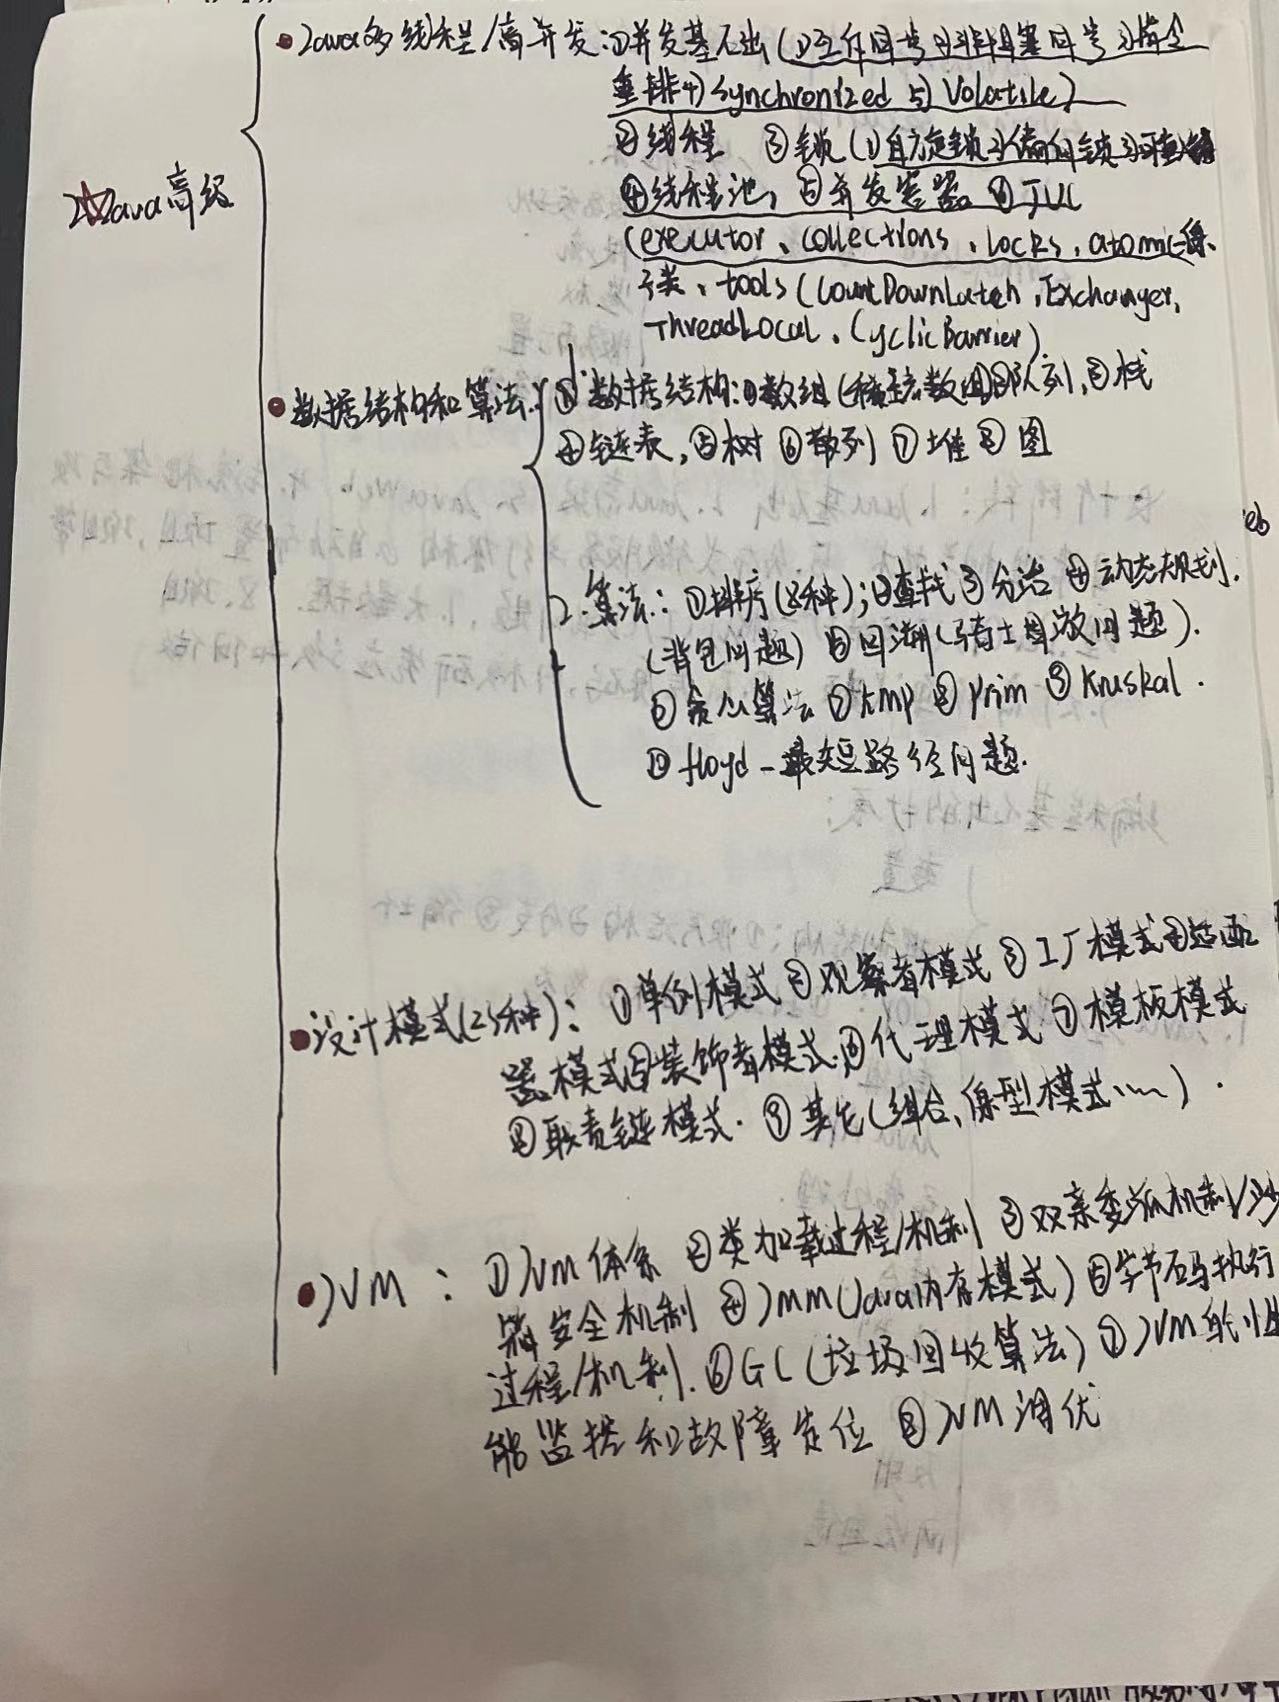 Java多线程/高并发:①并发基础(1)互斥同步2)非阻塞同步3)指令
重排4)synchronized 5)Volatile)
②线程 ③锁(1)自旋锁2)偏向锁3)可重入锁
④线程池, ⑤并发容器 ⑥JUC
2、Java高级
(executor、collections、locks、atomic(原
子类、tools(CountDownLatch,Exchanger,
ThreadLocal、CyclicBarrier)
数据结构和算法: 1、数据结构:①数组(稀疏数组)②队列,③栈
④链表,⑤树⑥散列 ⑦堆⑧图
2、算法:①排序(8种);②查找③分治④动态规划.
(背包问题) ⑤回溯(骑士周游问题).
⑥贪心算法 ⑦kmp ⑧prim ⑨Kruskal.
⑩floyd-最短路径问题.
设计模式(23种): ①单例模式②观察者模式③工厂模式④适配
器模式⑤装饰者模式.⑥代理模式⑦模板模式
⑧职责链模式.⑨其它(组合、原型模式……).
JVM: ①JVM体系②类加载过程/机制③双亲委派机制/沙
箱安全机制④JMM(Java内存模式)⑤字节码执行
过程/机制.⑥GC(垃圾回收算法)⑦JVM性
能监控和故障定位⑧JVM调优